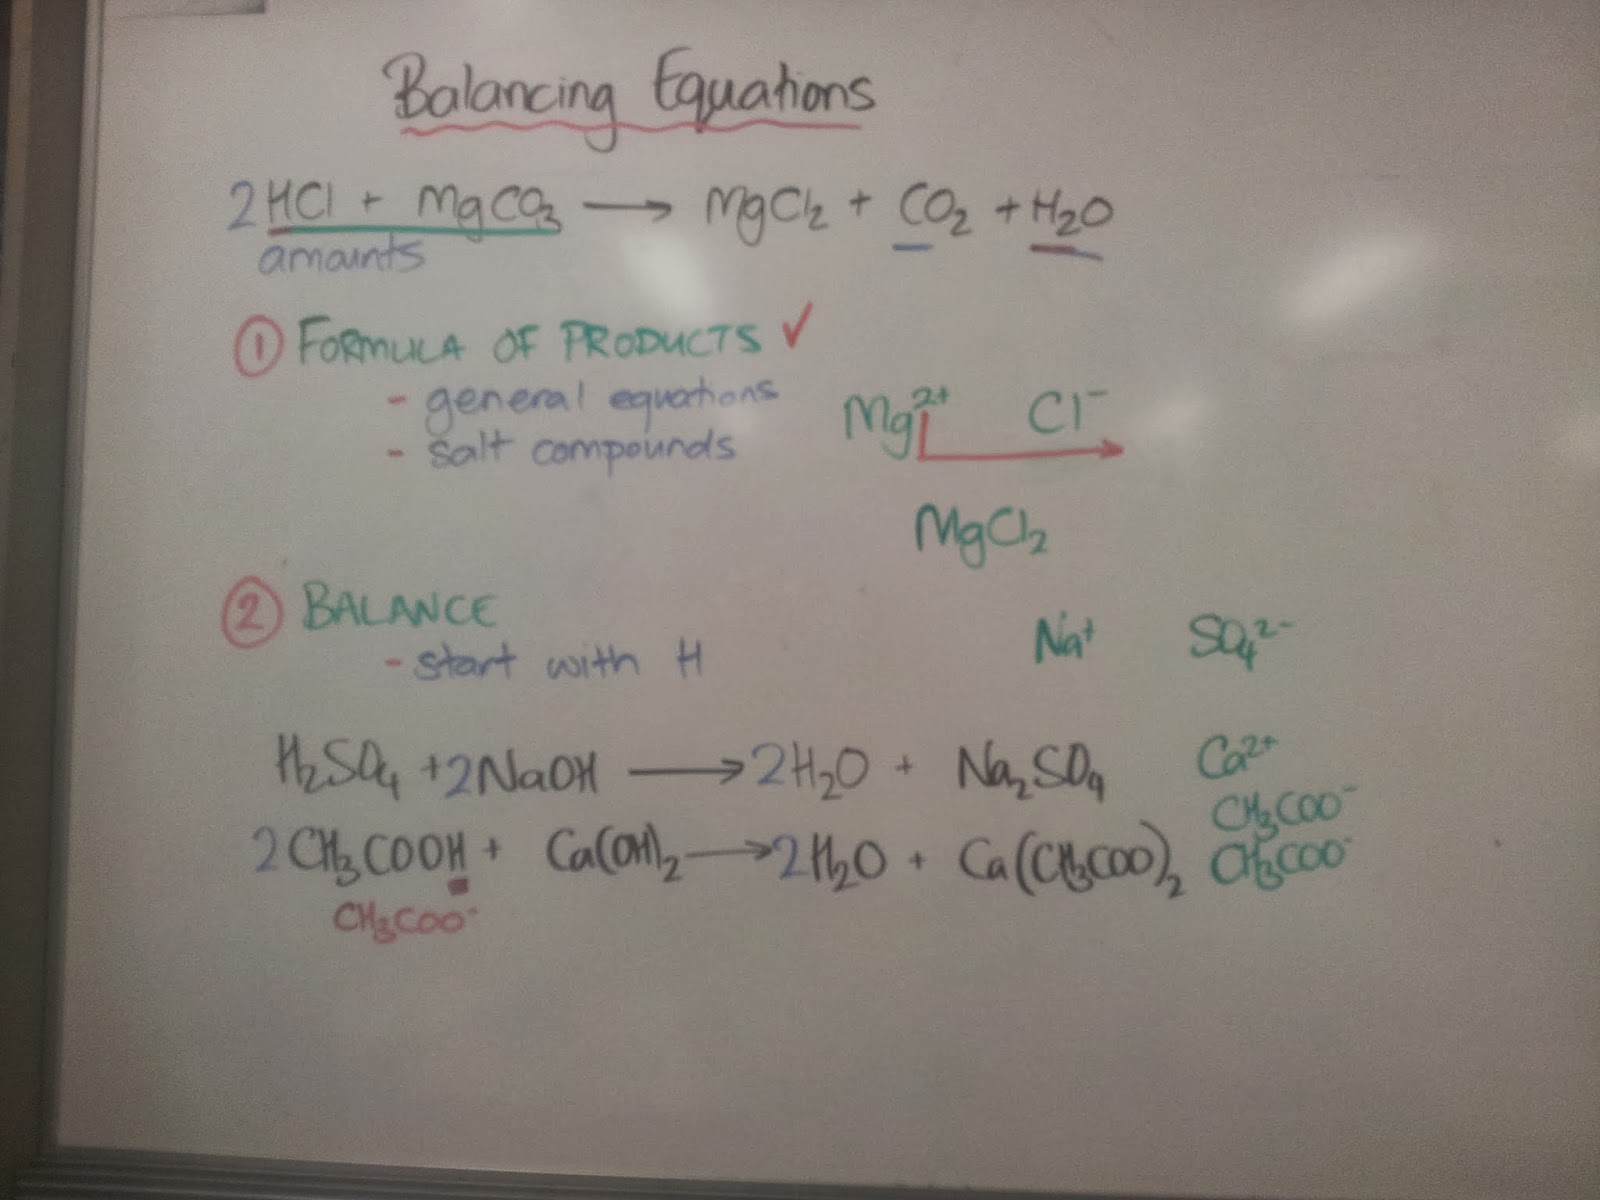 Balancing Equations
2HCl + MgCO₃ → MgCl₂ + CO₂ + H₂O
amounts
① FORMULA OF PRODUCTS ✓
- general equations
- salt compounds
Mg²⁺ Cl⁻
MgCl₂
② BALANCE
- start with H
Na⁺ SO₄²⁻
H₂SO₄ + 2NaOH → 2H₂O + Na₂SO₄
Ca²⁺
CH₃COO⁻
2CH₃COOH + Ca(OH)₂ → 2H₂O + Ca(CH₃COO)₂
CH₃COO⁻
CH₃COO⁻